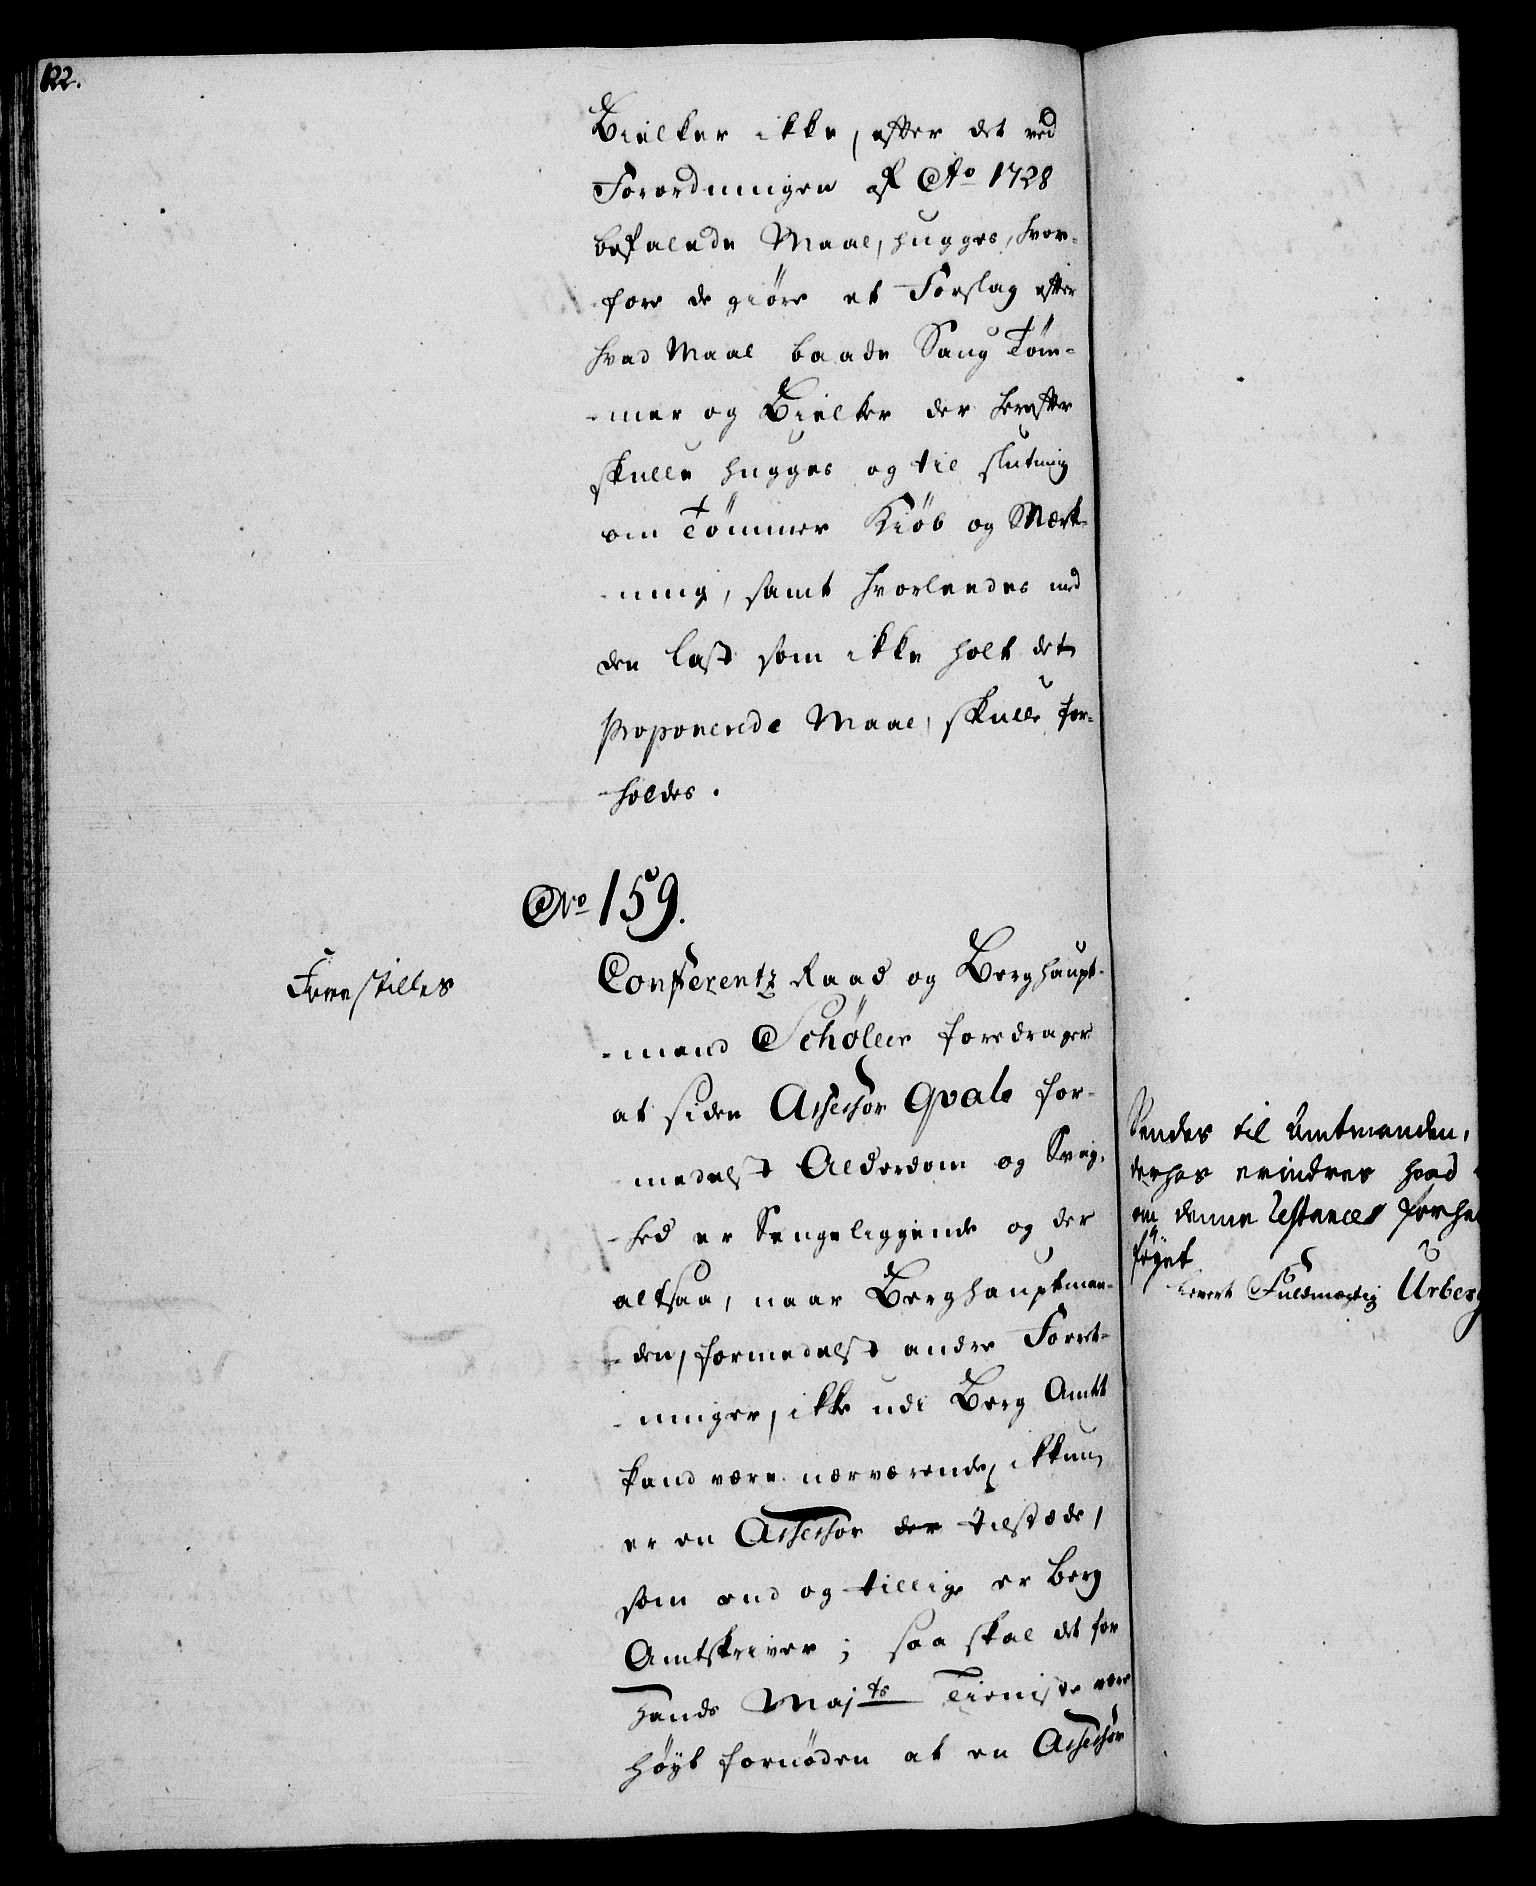 122.
Bielker ikke, efter det ved
Forordningen af Ao 1728
befalede Maal, hugges, hvor-
fore de giöre et Forslag efter
hvad Maal baade Saug Töm-
-mer og Bielker der herefter
skulle hugges og til slutning
om Tömmer Kiöb og Mærk-
-ning, samt hvorleedes med
den last som ikke holt det
proponerede Maal, skulle for-
-holdes.
No 159.
Forestilles
Conferentz Raad og Berghaupt-
-mand Schøller foredrager
at siden Assessor Qvale for-
-medelst Alderdom og Svag-
-hed er Sengeliggende og der
altsaa, naar Berghauptman-
-den, formedelst andre Forret-
-ninger, ikke udi Berg Amtet
kand være nærværende, ikkun
er en Assessor der tilstæde,
som end og tillige er Berg
Amtskriver; saa skal det for
Hands Majts Tieniste være
höyt fornöden at en Assessor
Sendes til Amtmanden,
derhos erindres hvad
om denne
föyet
Leveret Fuldmægtig Urberg